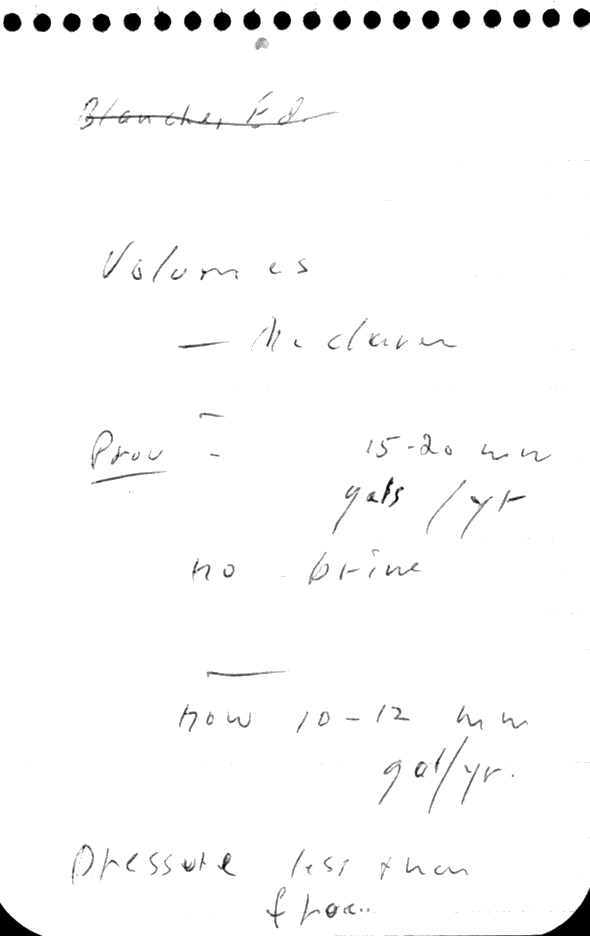 Blanche, Ed.
Volumes
—
Prov - 15-20 mm
gals / yr
no brine
now 10-12 mm
gal/yr.
pressure less than
frac..